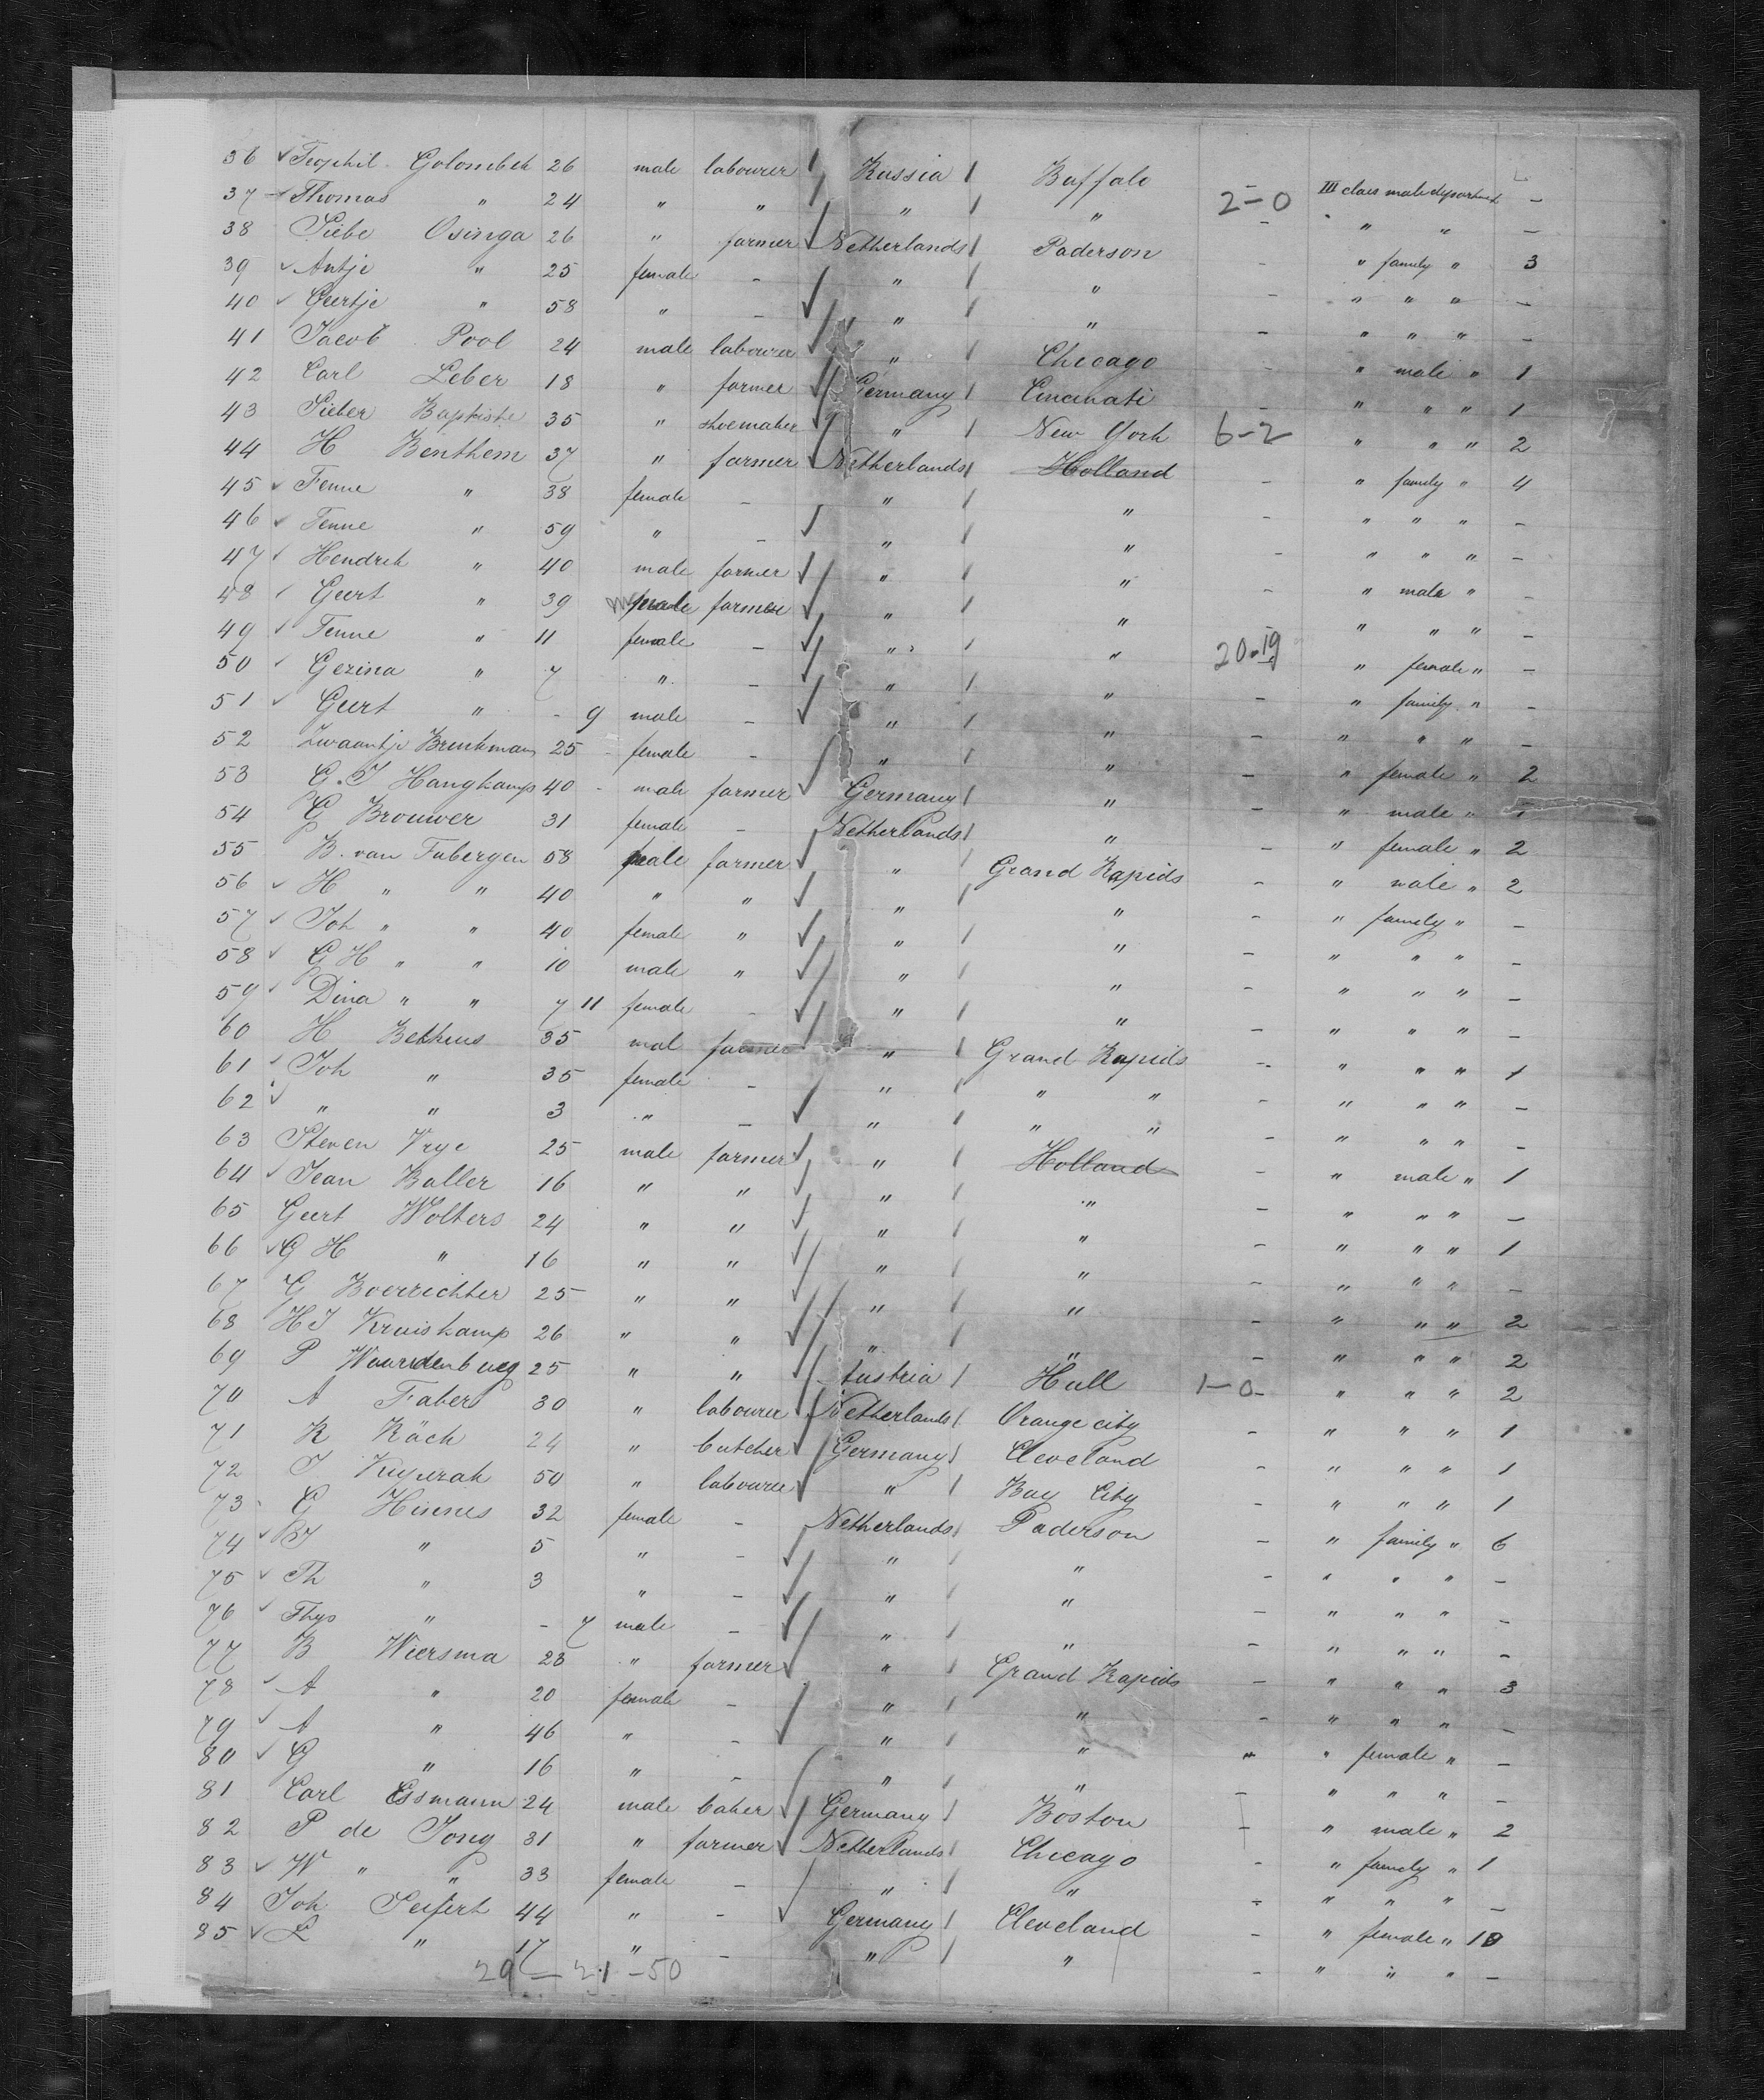 36 Teophil Golombek 26 male labourer Russia Buffalo III class male department -
37 Thomas " 24 " " " " 2-0 " " -
38 Siebe Osinga 26 " farmer Netherlands Paderson - " family " 3
39 Antje " 25 female - " " - " " " -
40 Geertje " 58 " - " " - " " " -
41 Jacob Pool 24 male labourer " Chicago - " male " 1
42 Carl Leber 18 " farmer Germany Cincinati - " " " 1
43 Pieter Baptiste 35 " shoemaker " New York 6-2 " " " 2
44 H Benthem 37 " farmer Netherlands Holland - " family " 4
45 Fenne " 38 female - " " - " " " -
46 Fenne " 59 " - " " - " " " -
47 Hendrik " 40 male farmer " " - " male " -
48 Geert " 39 male farmer " " " " " -
49 Fenne " 11 female - " " 20-19 " female " -
50 Gezina " 7 " - " " - " family " -
51 Geert " - 9 male - " " - " " " -
52 Zwaantje Brinkman 25 - female - " " - " female " 2
53 G.J Hangkamp 40 - male farmer Germany " - " male "
54 G Brouwer 31 female - Netherlands " - " female " 2
55 B. van Tubergen 58 male farmer " Grand Rapids - " male " 2
56 H " " 40 " " " " - " family " -
57 Joh " " 40 female " " " - " " " -
58 G H " " 10 male " " " - " " " -
59 Dina " " 7 11 female - " " - " " " -
60 H Bethuis 35 mal farmer " Grand Rapids - " " " 1
61 Joh " 35 female - " " " - " " " -
62 " " 3 " - " " " - " " " -
63 Steven Vrye 25 male farmer " Holland - " male " 1
64 Jean Baller 16 " " " " - " " " -
65 Geert Wolters 24 " " " " - " " " 1
66 G H " 16 " " " " - " " " -
67 G Boerrichter 25 " " " " - " " " 2
68 H J Kruiskamp 26 " " " " - " " " 2
69 P Waardenburg 25 " " Austria Hull 1-0 - " " " 2
70 A Faber 30 " labourer Netherlands Orange city - " " " 1
71 K Räch 24 " butcher Germany Cleveland - " " " 1
72 J 50 " labourer " Bay City - " " " 1
73 G Hinnes 32 female - Netherlands Paderson - " family " 6
74 " 5 " - " " - " " " -
75 Th " 3 " - " " - " " " -
76 Thys " - 7 male - " " - " " " -
77 B Wiersma 23 " farmer " Grand Rapids - " " " 3
78 A " 20 female - " " - " " " -
79 A " 46 " - " " " " female " -
80 G " 16 " - " " - " " " -
81 Carl Essmann 24 male baker Germany Boston - " male " 2
82 P de Jong 31 " farmer Netherlands Chicago - " family " 1
83 W " " 33 female - " " - " " " -
84 Joh Seifert 44 " - Germany Cleveland - " female " 10
85 L " 17 " - " " - " " " -
29 - 21 - 50